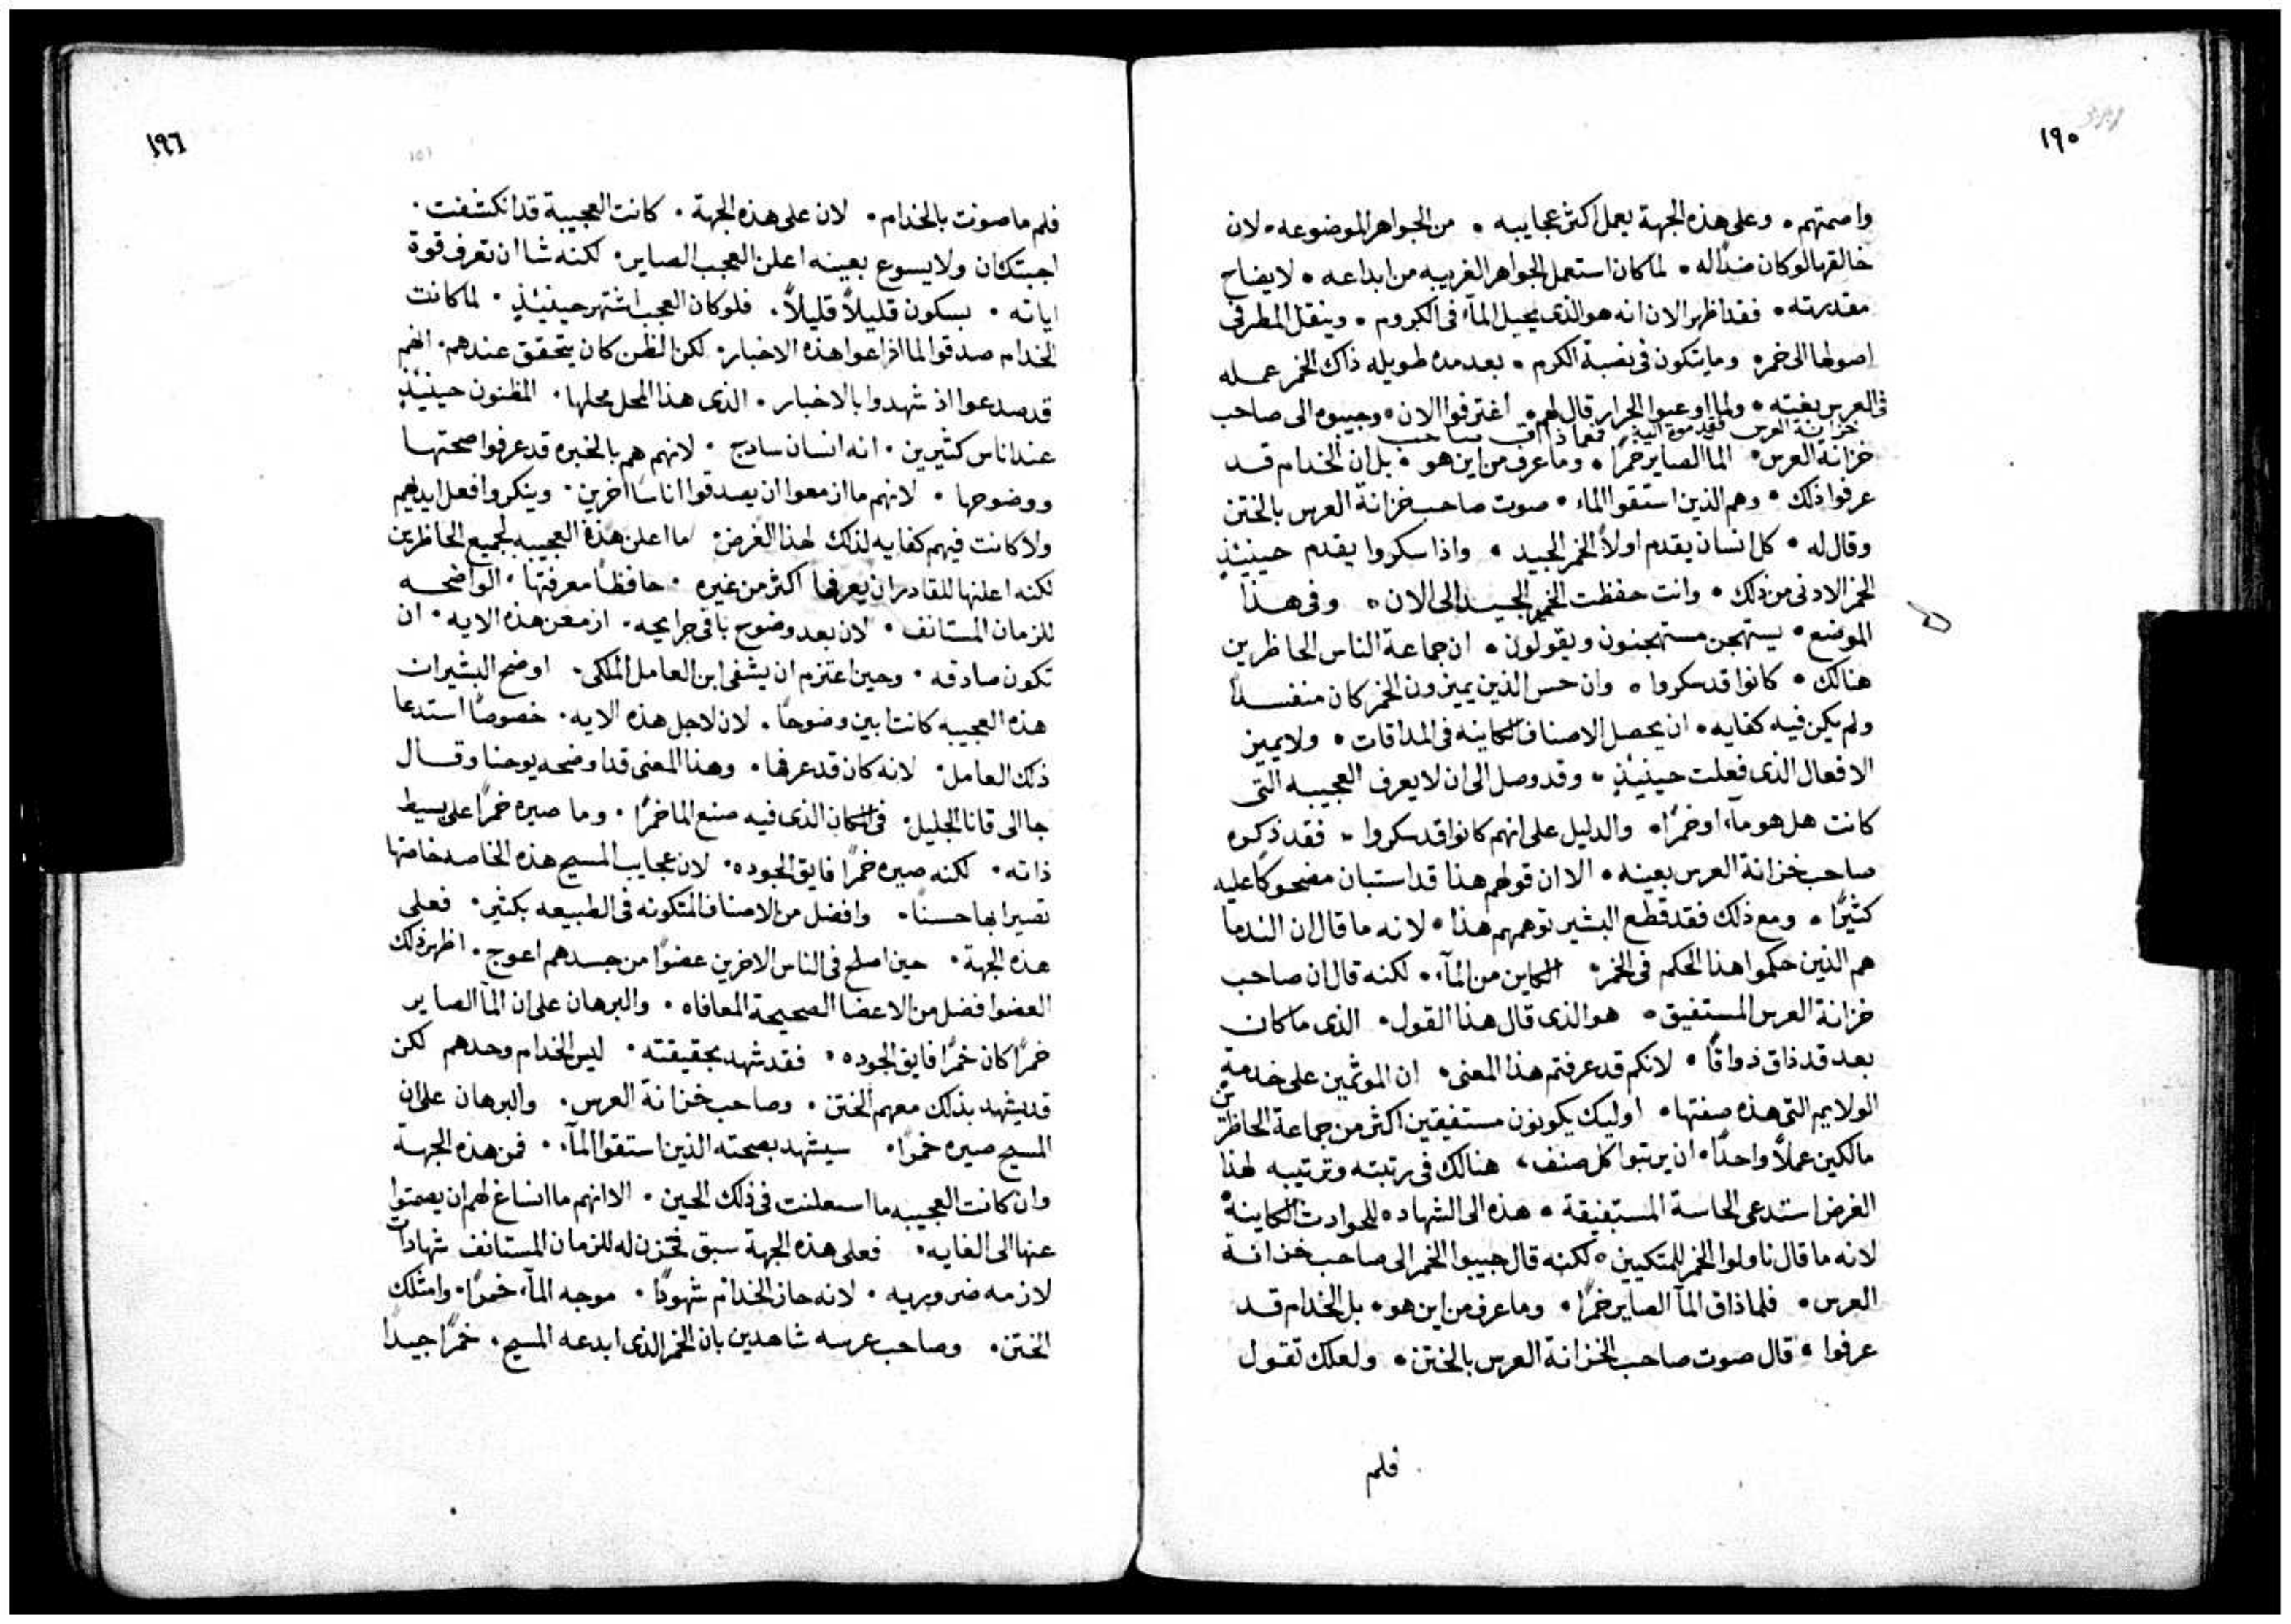 ١٩٥
واصمتهم • وعلى هذه الجهة يعمل اكثر عجايبه • من الجواهر الموضوعه • لان
خالقها لو كان ضداً له • لما كان استعمل الجواهر الغريبه من ابداعه • لايضاح
مقدرته • فقد اظهر الان انه هو الذى يحيل المآء فى الكروم • وينقل المطر فى
اصولها الى خمره وما يتكون فى نصبة الكرم • بعد مده طويله ذاك الخمر عمله
فى العرس بغيته • ولما اوعبوا الجرار قال لهم • اغترفوا الان • وجيبوه الى صاحب
خزانة العرس فقدموه اليه فلما ذاق صاحب
خزانة العرس • الما الصاير خمرًا • وما عرف من اين هو • بل ان الخدام قد
عرفوا ذلك • وهم الذين استقوا الماء • صوت صاحب خزانة العرس بالختن
وقال له • كل انسان يقدم اولاً الخمر الجيد • واذا سكروا يقدم حينيئذٍ
الخمر الادنى من ذلك • وانت حفظت الخمر الجيد الى الان • وفى هذا
الموضع • يستهجن مستهجنون ويقولون • ان جماعة الناس الحاظرين
هنالك • كانوا قد سكروا • وان حس الذين يميزون الخمر كان منفسداً
ولم يكن فيه كفايه • ان يحصل الاصناف الكاينه فى المداقات • ولا يميز
الافعال الذى فعلت حينيئذٍ • وقد وصل الى ان لا يعرف العجيبه التى
كانت هل هو مآء او خمرًا • والدليل على انهم كانوا قد سكروا • فقد ذكره
صاحب خزانة العرس بعينه • الا ان قولهم هذا قد استبان مضحوكًا عليه
كثيرًا • ومع ذلك فقد قطع البشير توهمهم هذا • لانه ما قال ان الندما
هم الذين حكموا هذا الحكم فى الخمر • الكاين من المآء • لكنه قال ان صاحب
خزانة العرس المستفيق • هو الذى قال هذا القول • الذى ما كان
بعد قد ذاق ذواقًا • لانكم قد عرفتم هذا المعنى • ان الموتمين على خدمة
الولايم التى هذه صفتها • اوليك يكونون مستفيقين اكثر من جماعة الحاظرين
مالكين عملاً واحدًا • ان يرتبوا كل صنف • هنالك فى رتبته وترتيبه لهذا
الغرض استدعى الحاسة المستفيقة • هذه الى الشهاده للحوادث الكاينة •
لانه ما قال ناولوا الخمر للمتكيين • لكنه قال جيبوا الخمر الى صاحب خزانة
العرس • فلما ذاق المآ الصاير خمرًا • وما عرف من اين هو • بل الخدام قد
عرفوا • قال صوت صاحب الخزانة العرس بالختن • ولعلك تقول
فلم
١٩٦
فلم ما صوت بالخدام • لان على هذه الجهة • كانت العجيبة قد انكشفت •
اجبتك ان ولا يسوع بعينه اعلن العجب الصاير • لكنه شا ان تعرف قوة
اياته • بسكون قليلاً قليلاً • فلو كان العجب اشتهر حينيئذٍ • لما كانت
الخدام صدقوا لما اذاعوا هذه الاخبار • لكن الظن كان يتحقق عندهم • انهم
قد صدعوا اذ شهدوا بالاخبار • الذى هذا المحل محلها • المظنون حينيئذٍ
عند اناس كثيرين • انه انسان سادج • لانهم هم بالخبره قد عرفوا صحتها
ووضوحها • لانهم ما ازمعوا ان يصدقوا اناسًا اخرين • وينكروا فعل ايديهم
ولا كانت فيهم كفايه لذلك لهذا الغرض • ما اعلن هذة العجيبه لجميع الحاظرين
لكنه اعلنها للقادر ان يعرفها اكثر من غيره • حافظًا معرفتها • الواضحه
للزمان المستانف • لان بعد وضوح باقى جرايحه • ازمعن هذه الايه • ان
تكون صادقه • وحين اعتزم ان يشفى ابن العامل الملكى • اوضح البشيران
هذه العجيبه كانت ابين وضوحًا • لان لاجل هذه الايه • خصوصًا استدعا
ذلك العامل • لانه كان قد عرفها • وهذا المعنى قد اوضحه يوحنا وقال
جا الى قانا الجليل • فى المكان الذى فيه صنع الما خمرًا • وما صيره خمرًا على بسيط
ذاته • لكنه صيره خمرًا فايق الجوده • لان عجايب المسيح هذه الخاصه خاصتها
تصير ابها حسنًا • وافضل من الاصناف المتكونه فى الطبيعه بكثير • فعلى
هذه الجهة • حين اصلح فى الناس الاخرين عضوًا من جسدهم اعوج • اظهر ذلك
العضو افضل من الاعضا الصحيحة المعافاه • والبرهان على ان المآ الصاير
خمرًا كان خمرًا فايق الجوده • فقد شهد بحقيقته • ليس الخدام وحدهم لكن
قد يشهد بذلك معهم الختن • وصاحب خزانة العرس • والبرهان على ان
المسيح صيره خمرًا • سيشهد بصحته الذين استقوا المآء • فمن هذه الجهة
وان كانت العجيبه ما استعلنت فى ذلك الحين • الا انهم ما انساغ لهم ان يصمتوا
عنها الى الغايه • فعلى هذه الجهة سبق فخزن له للزمان المستانف شهادات
لازمه ضروريه • لانه حاز الخدام شهودًا • موجه المآء خمرًا • وامتلك
الختن • وصاحب عرسه شاهدين بان الخمر الذى ابدعه المسيح • خمرًا جيدًا